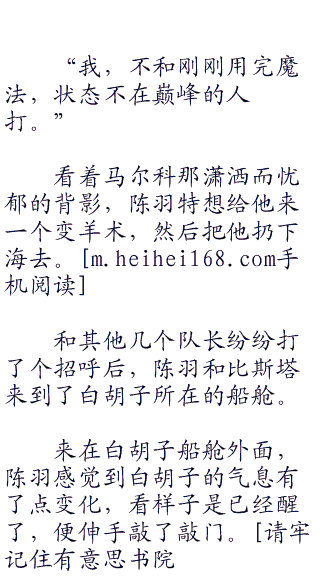 “我，不和刚刚用完魔
法，状态不在巅峰的人
打。”
看着马尔科那潇洒而忧
郁的背影，陈羽特想给他来
一个变羊术，然后把他扔下
海去。[m.heihei168.com手
机阅读]
和其他几个队长纷纷打
了个招呼后，陈羽和比斯塔
来到了白胡子所在的船舱。
来在白胡子船舱外面，
陈羽感觉到白胡子的气息有
了点变化，看样子是已经醒
了，便伸手敲了敲门。[请牢
记住有意思书院